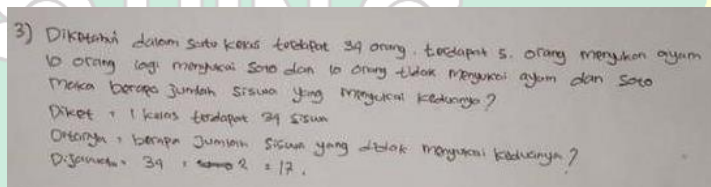 3) Diketahui dalam satu kelas terdapat 34 orang. terdapat 5. orang menyukai ayam
10 orang lagi menyukai soto dan 10 orang tidak menyukai ayam dan soto
maka berapa jumlah siswa yang menyukai keduanya?
Diket : 1 kelas terdapat 34 siswa
Ditanya : berapa jumlah siswa yang tidak menyukai keduanya?
Dijawab : 34 : 2 = 17.